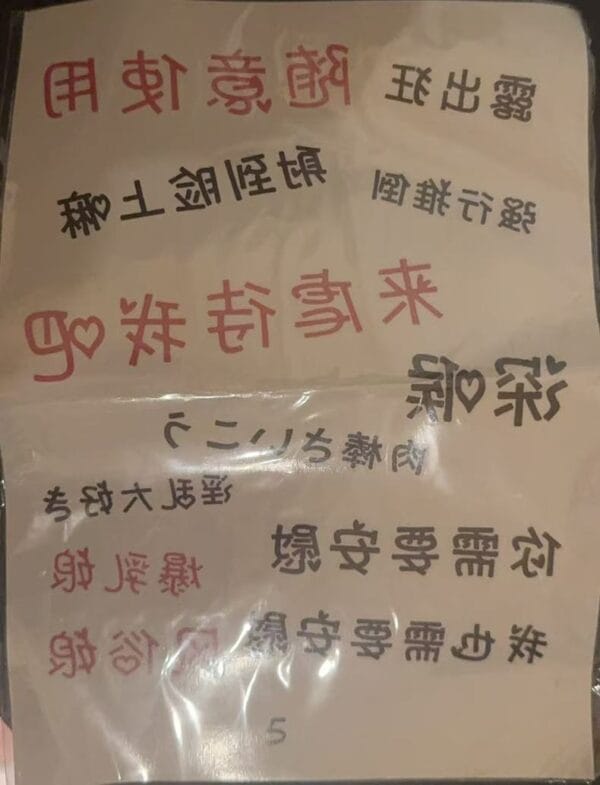 露出狂 随意使用
强行推倒 射到脸上嘛
来虐待我吧
深喉
肉棒さいこう
淫乱大好き
你需要安慰 爆乳娘
我也需要安慰 风俗娘
5